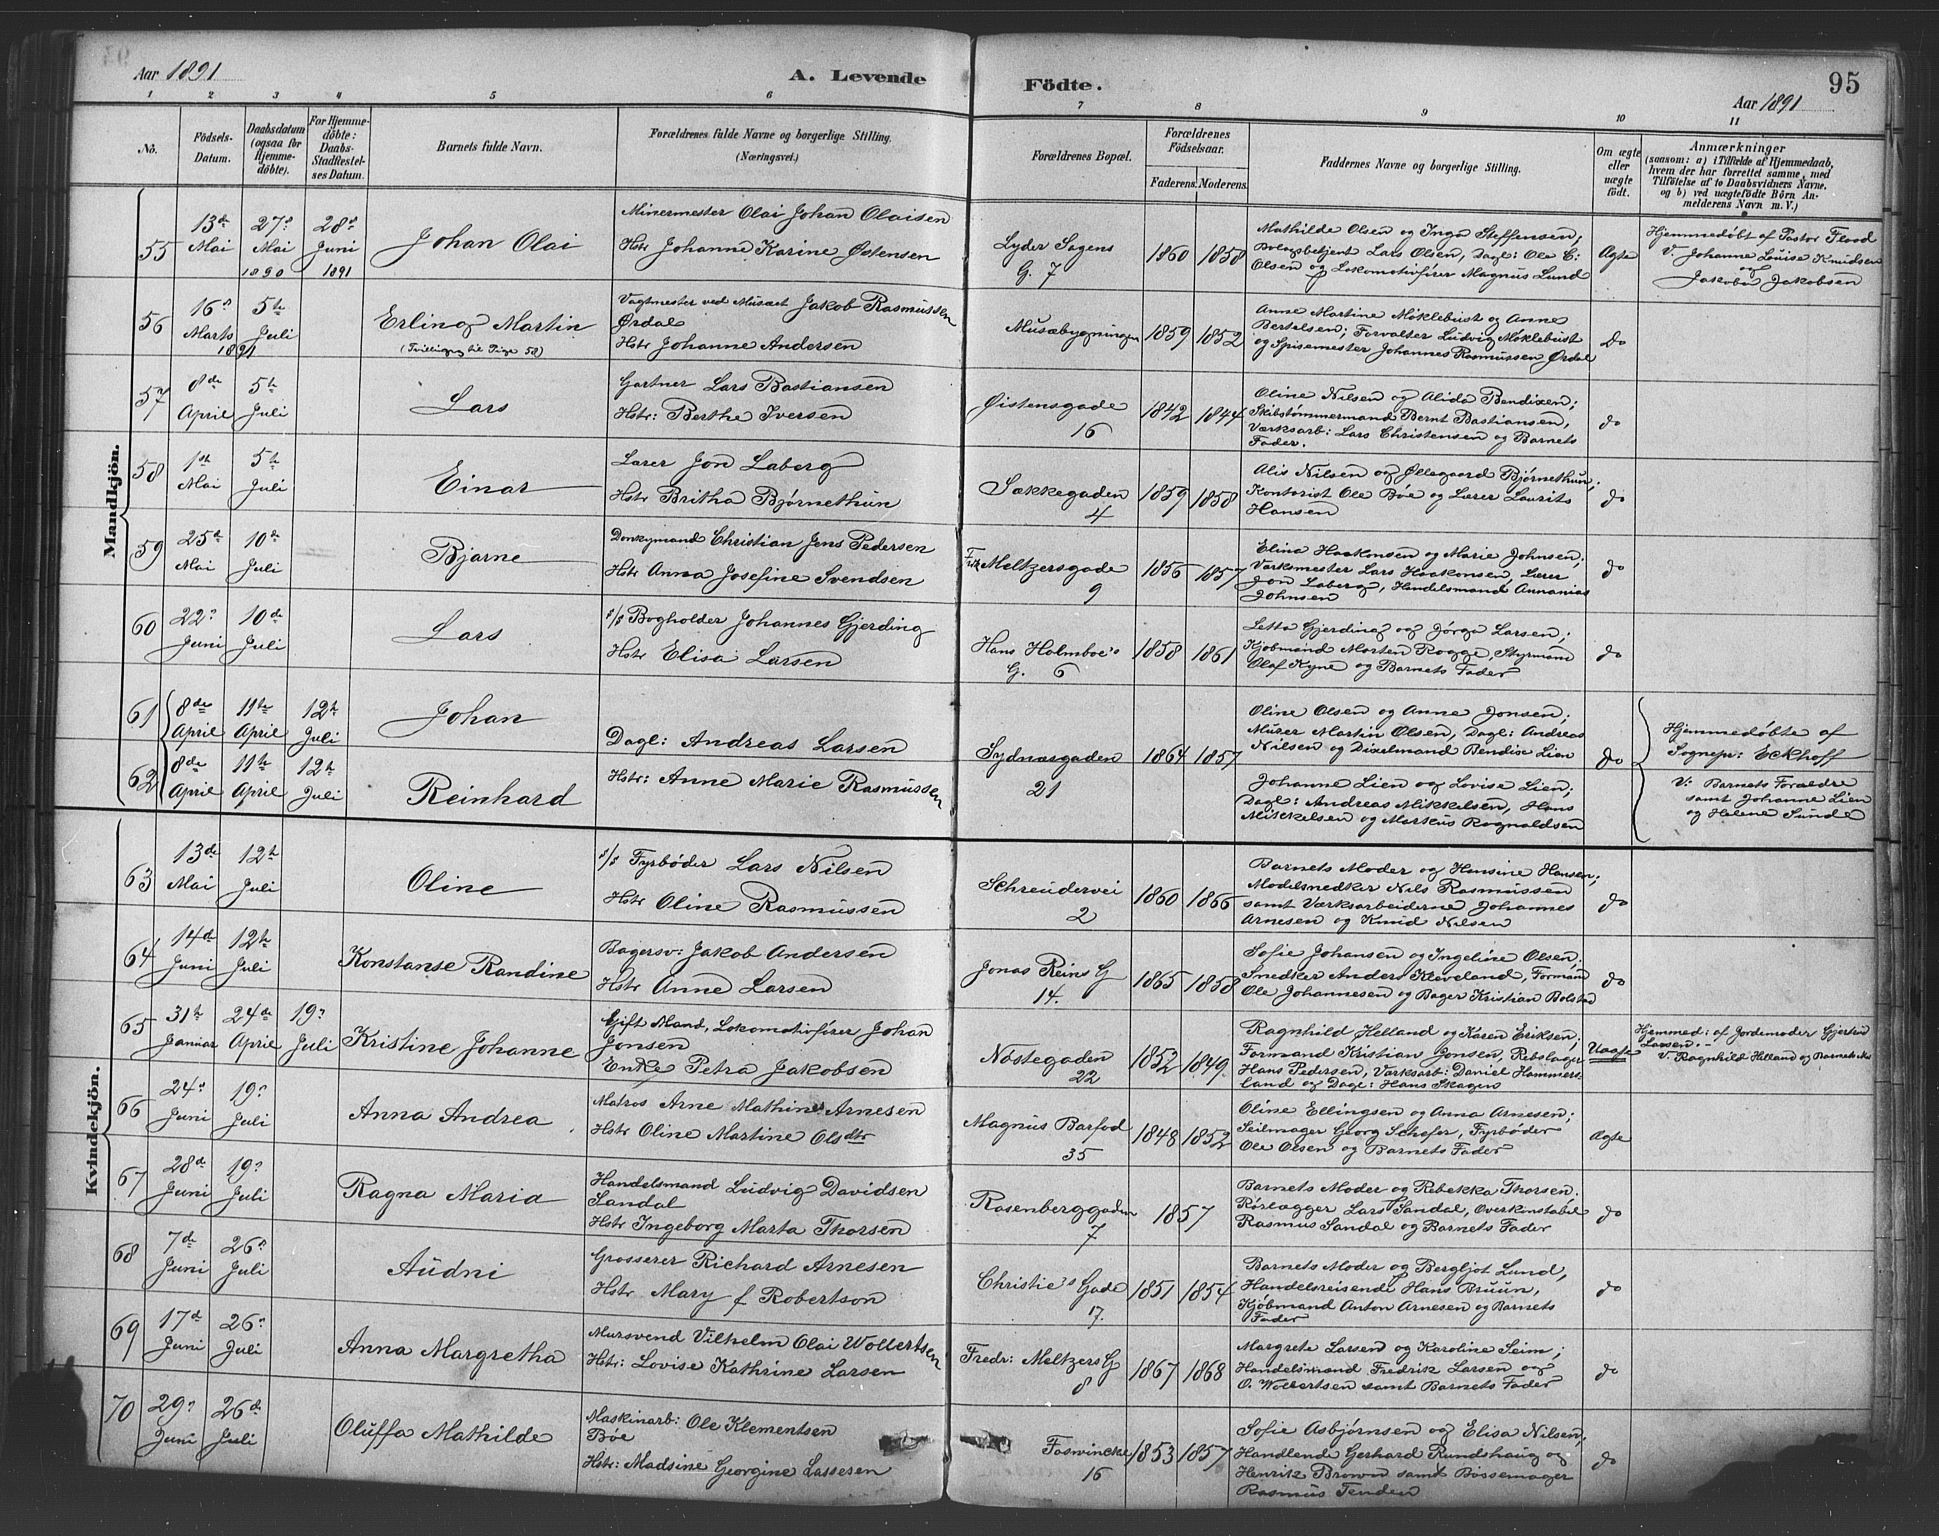 Aar 1891
A. Levende
Födte.
95
Aar 1891
1 2 3 4 5 6 7 8 9 10 11
No.
Födsels-
Datum.
Daabsdatum
(ogsaa for
Hjemme-
döbte).
For Hjemme-
döbte:
Daabs-
Stadfæstel-
ses Datum.
Barnets fulde Navn.
Forældrenes fulde Navne og borgerlige Stilling.
(Næringsvei.)
Forældrenes Bopæl.
Forældrenes
Födselsaar.
Faderens. Moderens.
Faddernes Navne og borgerlige Stilling.
Om ægte
eller
uægte
født.
Anmærkninger
(saasom: a) i Tilfælde af Hjemmedaab,
hvem der har forrettet samme, med
Tilføielse af to Daabsvidners Navne,
og b) ved uægtefödte Börn An-
melderens Navn m. V.)
Mandkjön.
55
13de Mai
27? Mai
28? Juni 1891
Johan Olai
Minermester Olai Johan Olaisen
Hstr Johanne Karine Østensen
Lyder Sagens
G. 7
1860 1858
Mathilde Olsen og Inga Steffensen;
Bologsbetjent Lars Olsen, Dagl: Ole C:
Olsen og Lokomotivfører Magnus Lund
Ægte
Hjemmedøbt af Pastor Flood
V. Johanne Louise Knudsen
og
Jakobe Jakobsen
56
1890
16? Marts
5te Juli
Erling Martin
(Tvilling til Pige 58)
Vagtmester ved Musæet Jakob Rasmussen
Ørdal
Hstr Johanne Andersen
Musæbygningen
1859 1852
Anne Martine Møklebust og Anne
Bertelsen; Forvalter Ludvig Møklebust
og Spisemester Johannes Rasmussen Ørdal
do
57
1891
8de April
5te Juli
Lars
Gartner Lars Bastiansen
Hstr: Berthe Iversen
Øistensgade
16
1842 1844
Oline Nilsen og Alida Bendixen;
Skibstømmermand Bernt Bastiansen,
Værksarb: Lars Christensen og Barnets
Fader.
do
58
1st Mai
5te Juli
Einar
Lærer Jon Laberg
Hstr Britha Bjørnethun
Sækkegaden
4
1859 1858
Alis Nilsen og Øllegaard Bjørnethun;
Kontorist Ole Bøe og Lærer Laurits
Hansen
do
59
25de Mai
10de Juli
Bjarne
Donkymand Christian Jens Pedersen
Hstr Anna Josefine Svendsen
Fred. Meltzersgade
9
1856 1857
Elina Haakonsen og Marie Johnsen;
Værksmester Lars Haakonsen, Lærer
Jon Laberg, Handelsmand Annanias
Johnsen
do
60
22? Juni
10de Juli
Lars
s/s Bogholder Johannes Gjerding
Hstr Elisa Larsen
Hans Holmboe's
G. 6
1858 1861
Letta Gjerding og Jørga Larsen;
Kjøbmand Morten Rogge, Styrmand
Olaf Kyne og Barnets Fader
do
61
8de April
11te April
12te Juli
Johan
Dagl: Andreas Larsen
Hstr: Anne Marie Rasmussen
Sydnæsgaden
21
1864 1857
Oline Olsen og Anne Jonsen;
Murer Martin Olsen, Dagl: Andreas
Nilsen og Dixelmand Bendix Lien
do
Hjemmedøbte af
Sognepr: Eckhoff
V: Barnets Forældre
samt Johanne Lien
og Helene Sunde
62
8de April
11te April
12te Juli
Reinhard
Johanne Lien og Lovise Lien;
Dagl: Andreas Mikkelsen, Hans
Mikkelsen og Markus Rognaldsen
Kvindekjön.
63
13de Mai
12te Juli
Oline
s/s Fyrbøder Lars Nilsen
Hstr Oline Rasmussen
Schreudervei
2
1860 1866
Barnets Moder og Hansine Hansen;
Modelsnedker Nils Rasmussen
samt Værksarbeiderne Johannes
Arnesen og Knud Nilsen
do
64
14de Juni
12te Juli
Konstanse Randine
Bagersv: Jakob Andersen
Hstr Anne Larsen
Jonas Reins G
14.
1865 1858
Sofie Johansen og Ingeline Olsen;
Snedker Anders Kleveland, Formand
Ole Johannesen og Bager Kristian Bolstad
do
65
31te Januar
24de April
19? Juli
Kristine Johanne
Gift Mand, Lokomotivfører Johan
Jonsen
Enke Petra Jakobsen
Nøstegaden
22
1852 1849
Ragnhild Helland og Karen Eriksen;
Formand Kristian Jonsen, Rebslager
Hans Pedersen, Værksarb: Daniel Hammers-
land og Dagl: Hans Skagen
Uægte
Hjemmed: af Jordemoder Gjertrud
Larsen.-
V. Ragnhild Helland og Barnets Mo
66
24? Juni
19? Juli
Anna Andrea
Matros Arne Mathine Arnesen
Hstr Oline Martine Olsdtr
Magnus Barfod
35
1848 1852
Oline Ellingsen og Anna Arnesen;
Seilmager Georg Schøfer, Fyrbøder
Ole Olsen og Barnets Fader
Ægte
67
28de Juni
19? Juli
Ragna Maria
Handelsmand Ludvig Davidsen
Sandal
Hstr Ingeborg Marta Thorsen
Rosenberggaden
7
1857
Barnets Moder og Rebekka Thorsen.
Rørlægger Lars Sandal, Overkonstabel
Rasmus Sandal og Barnets Fader
do
68
7de Juni
26? Juli
Audni
Grosserer Richard Arnesen
Hstr Mary f Robertson
Christie's Gade
17.
1851 1854
Barnets Moder og Bergljot Lund,
Handelsreisende Hans Bruun,
Kjøbmand Anton Arnesen og Barnets
Fader
do
69
17de Juni
26? Juli
Anna Margretha
Mursvend Vilhelm Olai Wolbertsen
Hstr: Lovise Kathrine Larsen
Fredr: Meltzers G
8
1867 1868
Margrete Larsen og Karoline Seim;
Handelsmand Fredrik Larsen og
O. Wolbertsen samt Barnets Fader
do
70
29? Juni
26de Juli
Oluffa Mathilde
Maskinarb: Ole Klementsen
Bøe
Hstr: Madsine Georgine Lassesen
Fosvincke
16
1853 1857
Sofie Asbjørnsen og Elisa Nilsen;
Handlende Gerhard Rundshaug og
Henrik Brown samt Bøssemager
Rasmus Tenden
do